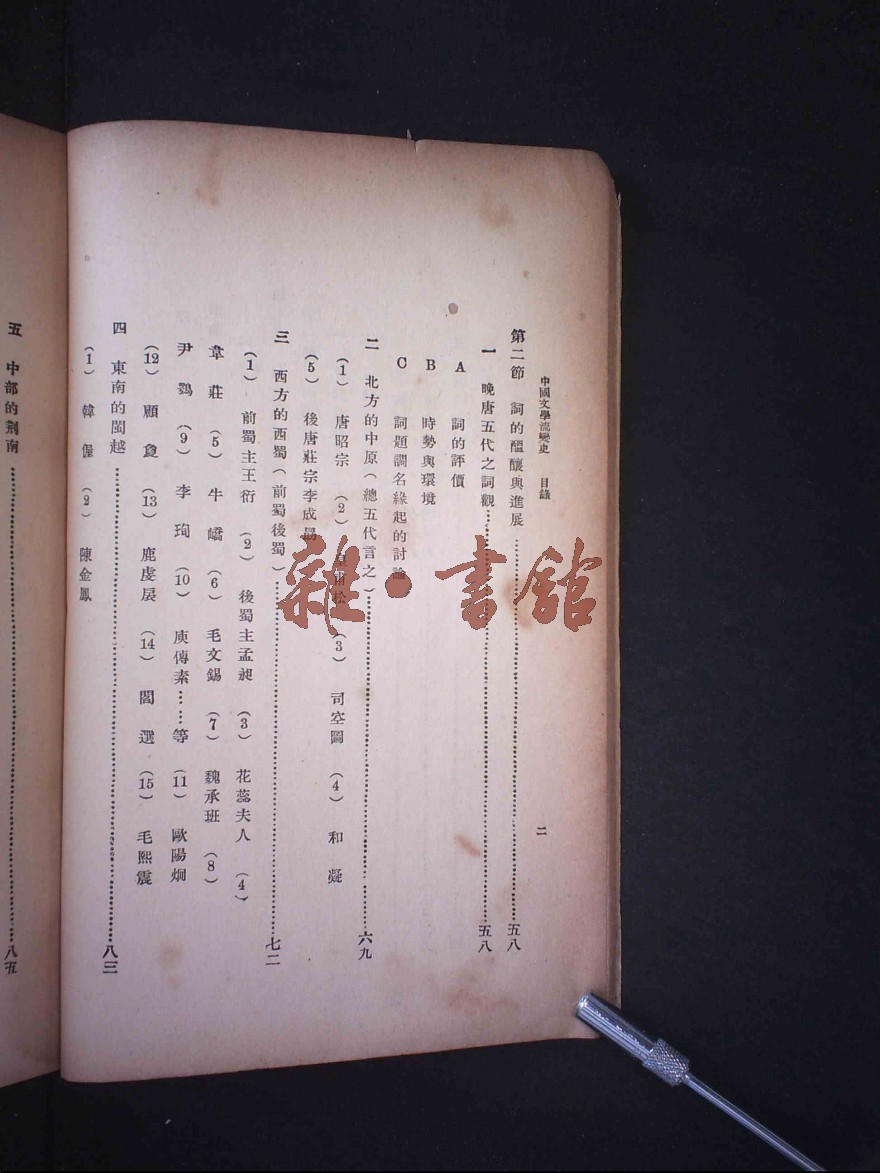 中國文學流變史　目錄
二
第二節　詞的醞釀與進展……五八
一　晚唐五代之詞觀……五八
A　詞的評價
B　時勢與環境
C　詞題調名緣起的討論
二　北方的中原（總五代言之）……六九
（1）唐昭宗　（2）皇甫松　（3）司空圖　（4）和凝
（5）後唐莊宗李成勗
三　西方的西蜀（前蜀後蜀）……七二
（1）前蜀主王衍　（2）後蜀主孟昶　（3）花蕊夫人　（4）
韋莊　（5）牛嶠　（6）毛文錫　（7）魏承班　（8）
尹鶚　（9）李珣　（10）庾傳素……等　（11）歐陽炯
（12）顧敻　（13）鹿虔扆　（14）閻選　（15）毛熙震
四　東南的閩越……八三
（1）韓偓　（2）陳金鳳
五　中部的荆南……八五
雜·書館